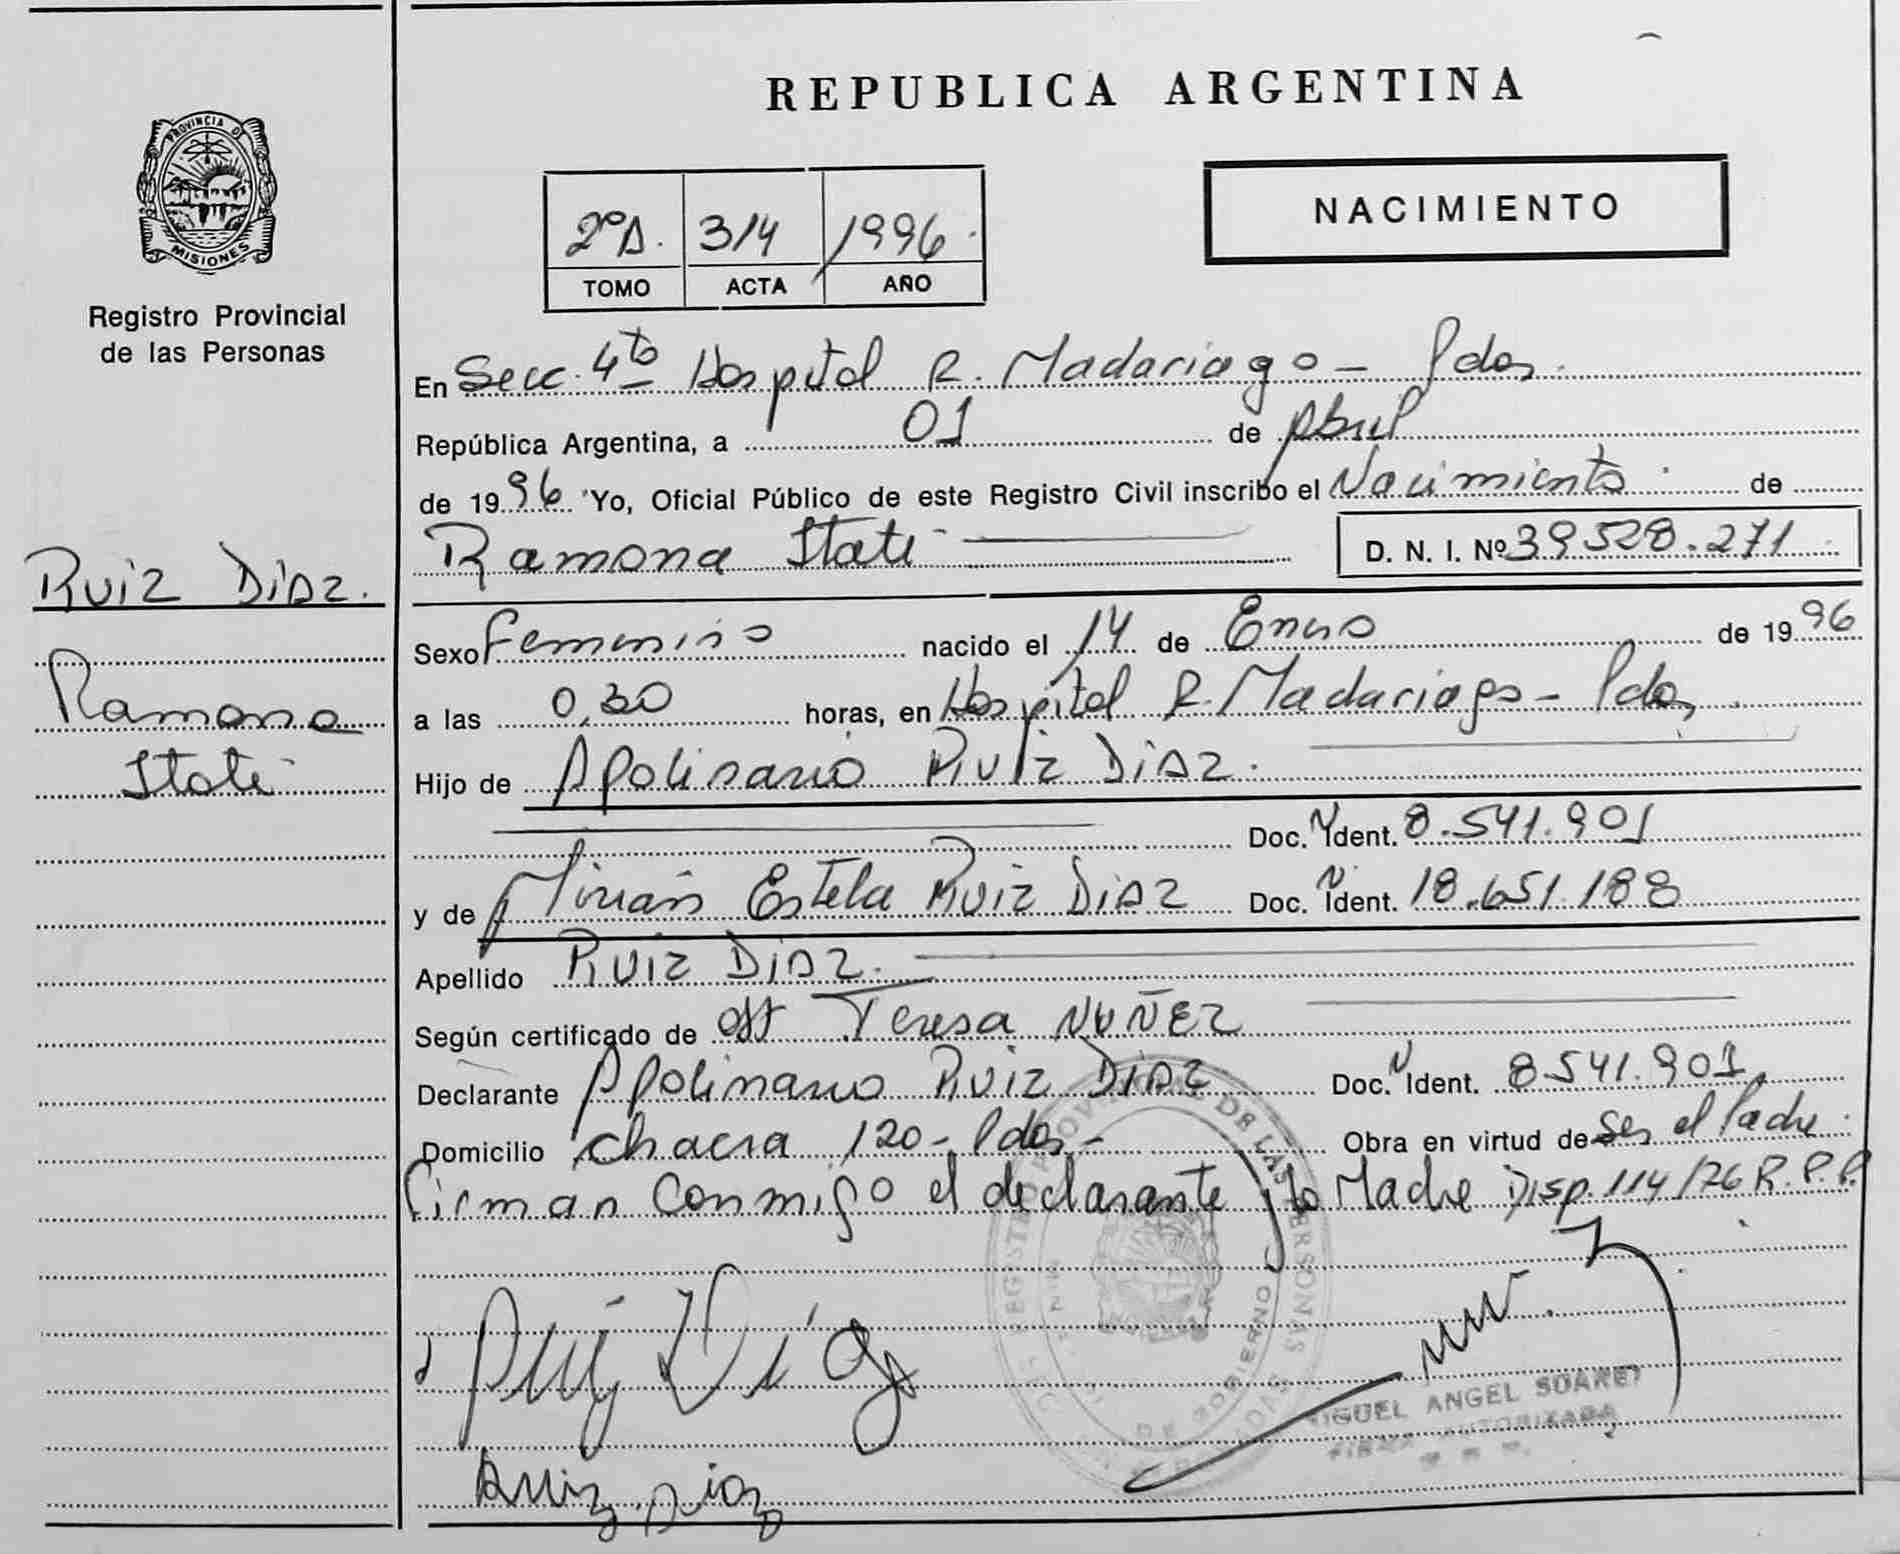 PROVINCIA DE
MISIONES
Registro Provincial
de las Personas
Ruiz Diaz.
Ramona
Itati
REPUBLICA ARGENTINA
NACIMIENTO
2ºA. 314 1996
TOMO ACTA AÑO
En Secc. 4to Hospital R. Madariaga - Pdas.
República Argentina, a 01 de Abril
de 1996 Yo, Oficial Público de este Registro Civil inscribo el Nacimiento de
Ramona Itati D. N. I. Nº 39.528.271
Sexo Femenino nacido el 14 de Enero de 1996
a las 0,30 horas, en Hospital R. Madariaga - Pdas.
Hijo de Apolinario Ruiz Diaz.
Doc. Ident. 8.541.901
y de Mirian Estela Ruiz Diaz Doc. Ident. 18.651.188
Apellido Ruiz Diaz.
Según certificado de Obst Teresa NUÑEZ
Declarante Apolinario Ruiz Diaz Doc. Ident. 8.541.901
Domicilio Chacra 120 - Pdas - Obra en virtud de Ser el Padre.
Firman Conmigo el declarante y la Madre Disp. 114/76 R.P.P.
Ruiz Díaz
Ruiz Diaz
MIGUEL ANGEL SUAREZ
FIRMA AUTORIZADA